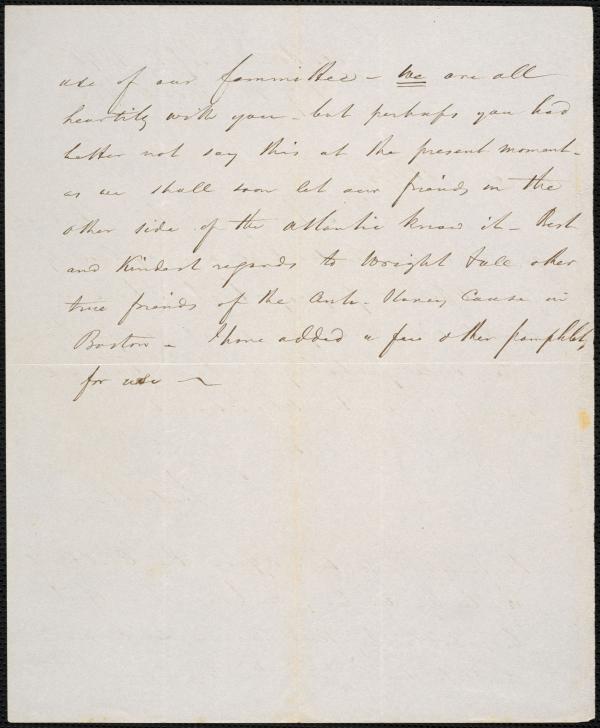 use of our Committee - We are all
heartily with you - but perhaps you had
better not say this at the present moment -
as we shall soon let our friends on the
other side of the Atlantic know it - Best
and Kindest regards to Wright & all other
true friends of the Anti-Slavery Cause in
Boston - I have added a few other pamphlets
for use -